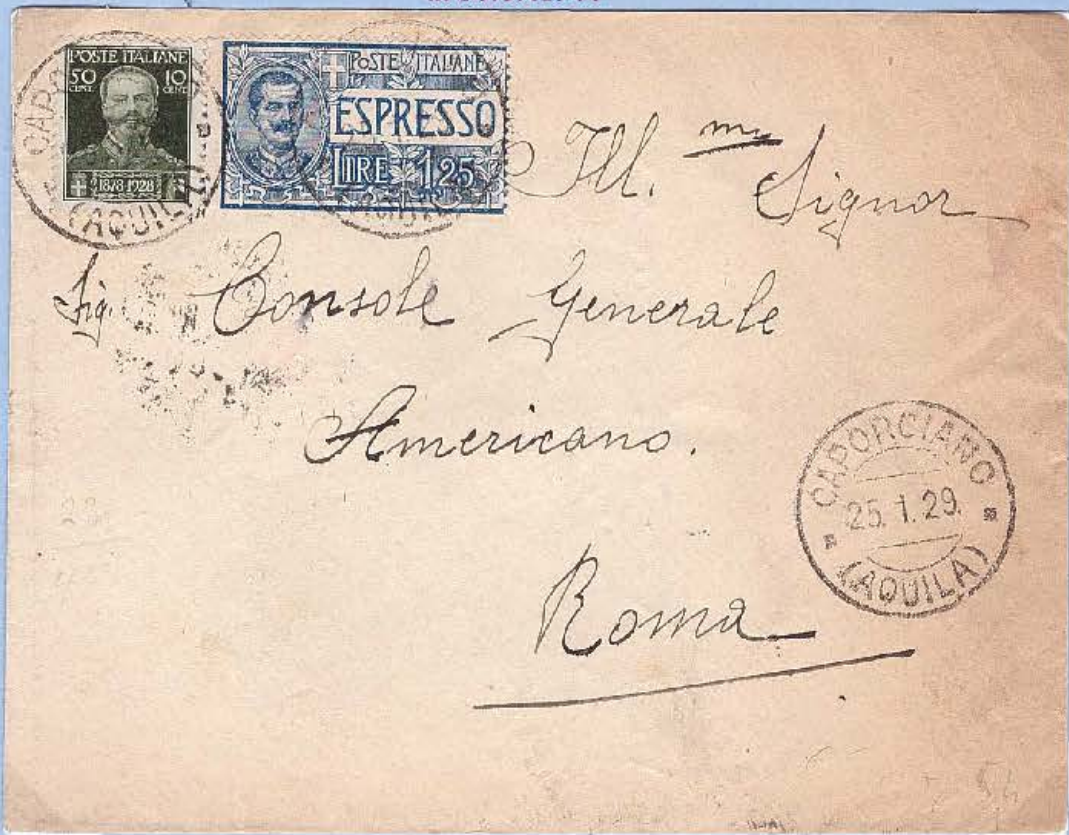 POSTE ITALIANE
50 CENT 10 CENT
1878 1928
POSTE ITALIANE
ESPRESSO
LIRE 1,25
(AQUILA)
Ill.mo Signor
Sig. Console Generale
Americano.
Roma
CAPORCIANO
25.1.29.
(AQUILA)